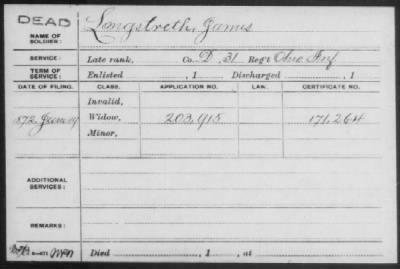 DEAD
NAME OF SOLDIER: Longstreth, James
SERVICE: Late rank, Co. D, 31 Reg't Ohio Inf
TERM OF SERVICE: Enlisted , 1 Discharged , 1
DATE OF FILING. CLASS. APPLICATION NO. LAW. CERTIFICATE NO.
Invalid,
1872, June Widow, 203,915 171,264
Minor,
ADDITIONAL SERVICES:
REMARKS:
Died , 1 , at